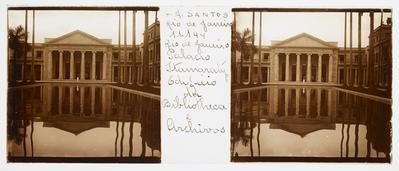 A. SANTOS
Rio de Janeiro
Rio de Janeiro
Palacio
Itamaraty
Edificio
da
Bibliotheca
e
Archivos